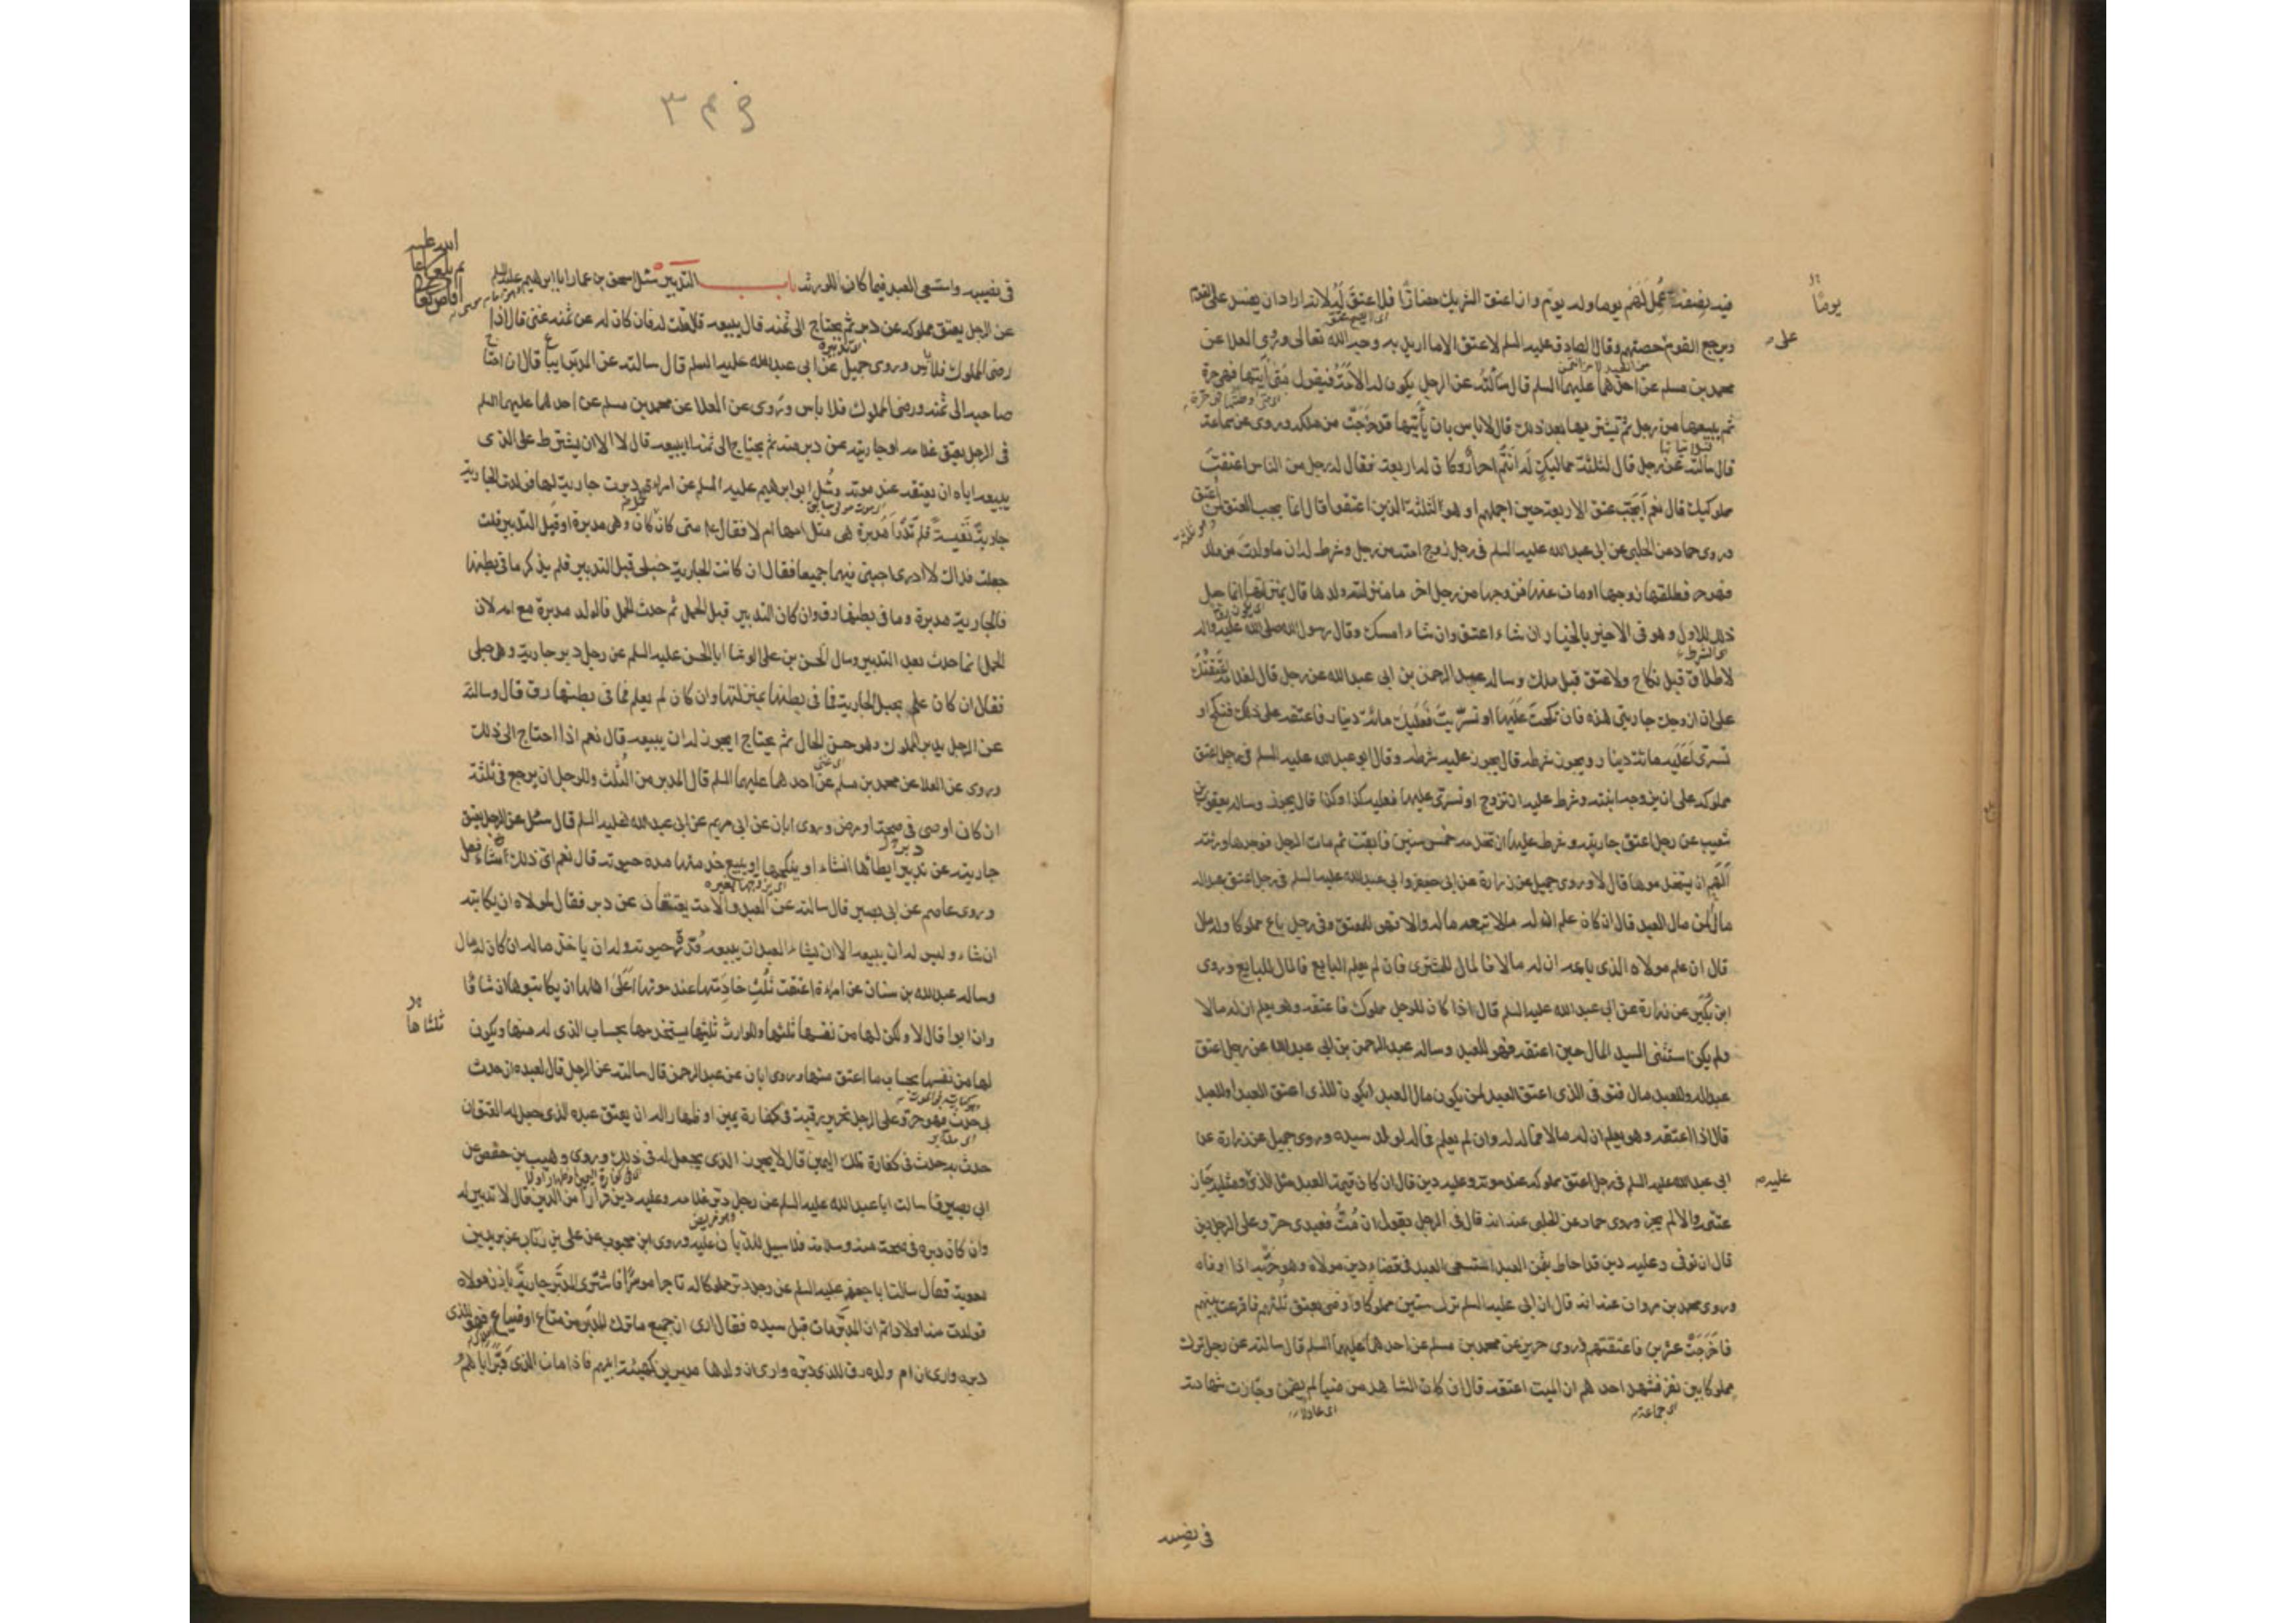 فيه بضعفه عمل لهم يوما وله يوم وان اعتق الشريك مضارّا فلا عتق له لانه اراد ان يفسد على القوم
ويرجع القوم حصتهم وقال الصادق عليه السلم لا عتق الا ما اريد به وجه الله تعالى وروى العلا عن
محمد بن مسلم عن احدهما عليهما السلم قال سألته عن الرجل يكون له الامة فيقول متى آتيتها فهي حرة
ثم يبيعها من رجل ثم يشتريها بعد ذلك قال لا باس بان يأتيها قد خرجت من ملكه وروى عن سماعة
قال سالته عن رجل قال لثلثة مماليك له انتم احرار وكان له اربعة فقال له رجل من الناس اعتقت
مملوكيك قال نعم أيجب عتق الاربعة حين اجملهم او هو الثلثة الذين اعتقوا قال انما يجب العتق لمن اعتق
وروى حماد عن الحلبي عن ابي عبد الله عليه السلم في رجل زوج امته من رجل وشرط له ان ما ولدت من ولد
فهو حر فطلقها زوجها او مات عنها فزوجها من رجل اخر ما منزلة ولدها قال بمنزلتها انما جعل
ذلك للاول وهو في الاخير بالخيار ان شاء اعتق وان شاء امسك وقال رسول الله صلى الله عليه واله
لا طلاق قبل نكاح ولا عتق قبل ملك وساله عبد الرحمن بن ابي عبد الله عن رجل قال لغلامه اعتقتك
على ان ازوجك جاريتي هذه فان نكحت عليها او تسريت فعليك مائة دينار فاعتقه على ذلك فنكح او
تسرى أعليه مائة دينار ويجوز شرطه قال يجوز عليه شرطه وقال ابو عبد الله عليه السلم في رجل اعتق
مملوكه على ان يزوجه ابنته وشرط عليه ان تزوج او تسرى عليها فعليه كذا وكذا قال يجوز وساله يعقوب بن
شعيب عن رجل اعتق جاريته وشرط عليها ان تخدمه خمس سنين فابقت ثم مات الرجل فوجدها ورثته
ألهم ان يستخدموها قال لا وروى جميل عن زرارة عن ابي جعفر وابي عبد الله عليهما السلم في رجل اعتق عبدا له
مال لمن مال العبد قال ان كان علم ان له مالا تبعه ماله والا فهو للمعتق وفي رجل باع مملوكا وله مال
قال ان علم مولاه الذي باعه ان له مالا فالمال للمشتري فان لم يعلم البايع فالمال للبايع وروى
ابن بكير عن زرارة عن ابي عبد الله عليه السلم قال اذا كان للرجل مملوك فاعتقه وهو يعلم ان له مالا
ولم يكن استثنى السيد المال حين اعتقه فهو للعبد وساله عبد الرحمن بن ابي عبد الله عن رجل اعتق
عبدا له وللعبد مال فتوفي الذي اعتق العبد لمن يكون مال العبد ايكون للذي اعتق العبد او للعبد
قال اذا اعتقه وهو يعلم ان له مالا فماله له وان لم يعلم فماله لولد سيده وروى جميل عن زرارة عن
ابي عبد الله عليه السلم في رجل اعتق مملوكه عند موته وعليه دين قال ان كان قيمة العبد مثل الذي عليه ومثله جاز
عتقه والا لم يجز وروى حماد عن الحلبي عنه انه قال في الرجل يقول ان متّ فعبدي حر وعلى الرجل دين
قال ان توفي وعليه دين قد احاط بثمن العبد استسعى العبد في قضاء دين مولاه وهو حرّ اذا اوفاه
وروى محمد بن مروان عنه انه قال ان ابي عليه السلم ترك ستين مملوكا واوصى بعتق ثلثهم فاقرعت بينهم
فاخرجت عشرين فاعتقتهم وروى حريز عن محمد بن مسلم عن احدهما عليهما السلم قال سالته عن رجل ترك
مملوكا بين نفر فشهد احدهم ان الميت اعتقه قال ان كان الشاهد مرضيا لم يضمن وجازت شهادته
اي جماعة
يومًا
على
عليه
في نصيبه
٣
في نصيبه واستسعى العبد فيما كان للورثة باب التدبير سئل اسحق بن عمار ابا ابراهيم عليه السلم
عن الرجل يعتق مملوكه عن دبر ثم يحتاج الى ثمنه قال يبيعه قلت فان كان له عن ثمنه غنى قال اذا
رضى المملوك فلا باس وروى جميل عن ابي عبد الله عليه السلم قال سالته عن المدبر ايباع قال ان احتاج
صاحبه الى ثمنه ورضى المملوك فلا باس وروى عن العلا عن محمد بن مسلم عن احدهما عليهما السلم
في الرجل يعتق غلامه او جاريته عن دبر منه ثم يحتاج الى ثمنه ايبيعه قال لا الا ان يشترط على الذي
يبيعه اياه ان يعتقه عند موته وسئل ابو ابراهيم عليه السلم عن امراة دبرت جارية لها فولدت الجارية
جارية نفيسة فلم تدر أمدبرة هي مثل امها ام لا فقال متى كان كان وهي مدبرة او قبل التدبير قلت
جعلت فداك لا ادري اجبني فيهما جميعا فقال ان كانت الجارية حبلى قبل التدبير فلم يذكر ما في بطنها
فالجارية مدبرة وما في بطنها رق وان كان التدبير قبل الحمل ثم حدث الحمل فالولد مدبرة مع امه لان
الحمل انما حدث بعد التدبير وسال الحسن بن علي الوشا ابا الحسن عليه السلم عن رجل دبر جارية وهي حبلى
فقال ان كان علم بحبل الجارية فما في بطنها بمنزلتها وان كان لم يعلم فما في بطنها رق قال وسالته
عن الرجل يدبر المملوك وهو حسن الحال ثم يحتاج ايجوز له ان يبيعه قال نعم اذا احتاج الى ذلك
وروى عن العلا عن محمد بن مسلم عن احدهما عليهما السلم قال المدبر من الثلث وللرجل ان يرجع في ثلثه
ان كان اوصى في صحة او مرض وروى ابان عن ابي مريم عن ابي عبد الله عليه السلم قال سئل عن الرجل يعتق
جاريته عن دبر ايطأها ان شاء او ينكحها او يبيع خدمتها مدة حيوته قال نعم اي ذلك شاء فعل
وروى عاصم عن ابي بصير قال سالته عن العبد والامة يعتقان عن دبر فقال لمولاه ان يكاتبه
ان شاء وليس له ان يبيعه الا ان يشاء العبد ان يبيعه قدر حيوته وله ان ياخذ ماله ان كان له مال
وساله عبد الله بن سنان عن امراة اعتقت ثلث خادمتها عند موتها أعلى اهلها ان يكاتبوها ان شاؤا
وان ابوا قال لا ولكن لها من نفسها ثلثها وللوارث ثلثيها يستخدمها بحساب الذي له منها ويكون
لها من نفسها بحساب ما اعتق منها وروى ابان عن عبد الرحمن قال سالته عن الرجل قال لعبده ان حدث
بي حدث فهو حر وعلى الرجل تحرير رقبة في كفارة يمين او ظهار اله ان يعتق عبده الذي جعل له العتق ان
حدث به حدث في كفارة تلك اليمين قال لا يجوز الذي يجعل له في ذلك وروى وهيب بن حفص عن
ابي بصير قال سالت ابا عبد الله عليه السلم عن رجل دبر غلامه وعليه دين فرارا من الدين قال لا تدبير له
وان كان دبره في صحة منه وسلامة فلا سبيل للديان عليه وروى ابن محبوب عن علي بن رئاب عن بريد بن
معوية قال سالت ابا جعفر عليه السلم عن رجل دبر مملوكا له تاجرا موسرا فاشترى المدبر جارية باذن مولاه
فولدت منه اولادا ثم ان المدبر مات قبل سيده فقال ارى ان جميع ما ترك المدبر من متاع او ضياع فهو للذي
دبره وارى ان ام ولده رق للذي دبره وارى ان ولدها مدبرين كهيئة ابيهم فاذا مات الذي دبر اباهم
ثلثاها